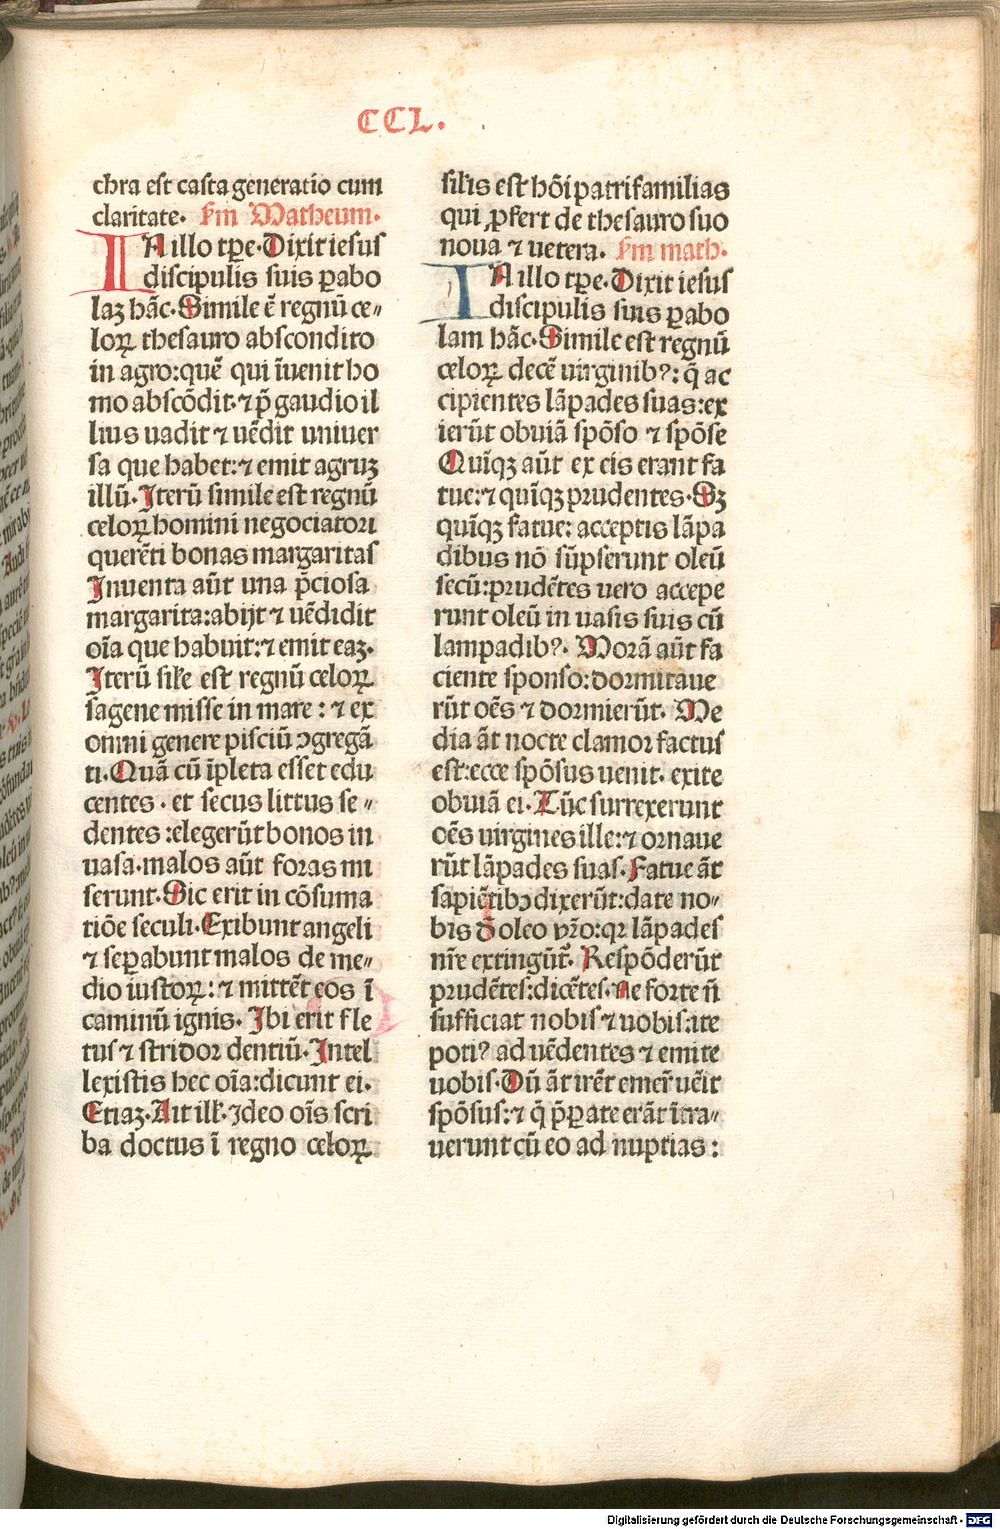 CCL.
chra est casta generatio cum
claritate. sm̄ Matheum.
IN illo tꝑe. Dixit iesus
discipulis suis ꝑabo
laꝫ hāc. Simile ē regnū ce⸗
loꝝ thesauro abscondito
in agro: quē qui īuenit ho
mo abscōdit. ⁊ p̄ gaudio il
lius uadit ⁊ uēdit univer
sa que habet: ⁊ emit agruꝫ
illū. Iterū simile est regnū
celoꝝ homini negociatori
querēti bonas margaritas
Inventa aūt una p̄ciosa
margarita: abijt ⁊ uēdidit
oīa que habuit: ⁊ emit eaꝫ.
Iterū sil̄e est regnū celoꝝ
sagene misse in mare : ⁊ ex
omni genere pisciū ꝯgregā
ti. Quā cū īpleta esset edu
centes . et secus littus se⸗
dentes : elegerūt bonos in
uasa. malos aūt foras mi
serunt. Sic erit in cōsuma
tiōe seculi. Exibunt angeli
⁊ seꝑabunt malos de me⸗
dio iustoꝝ: ⁊ mittēt eos ī
caminū ignis. Ibi erit fle
tus ⁊ stridor dentiū. Intel
lexistis hec oīa: dicunt ei.
Etiaꝫ. Ait ill̄. Ideo oīs scri
ba doctus ī regno celoꝝ
silis est hōi patrifamilias
qui ꝓfert de thesauro suo
noua ⁊ uetera. sm̄ math.
IN illo tꝑe. Dixit iesus
discipulis suis ꝑabo
lam hāc. Simile est regnū
celoꝝ decē uirginibꝰ: q̄ ac
cipientes lāpades suas: ex
ierūt obuiā spōso ⁊ spōse
Quīqꝫ aūt ex eis erant fa
tue: ⁊ quīqꝫ prudentes. Sꝫ
quīqꝫ fatue: acceptis lāpa
dibus nō sūpserunt oleū
secū: prudētes uero accepe
runt oleū in uasis suis cū
lampadibꝰ. Morā aūt fa
ciente sponso: dormitaue
rūt oēs ⁊ dormierūt. Me
dia āt nocte clamor factus
est: ecce spōsus uenit. exite
obuiā ei. Tūc surrexerunt
oēs uirgines ille: ⁊ ornaue
rūt lāpades suas. Fatue āt
sapiētibꝰ dixerūt: date no⸗
bis d̄ oleo vr̄o: qꝛ lāpades
nr̄e extingūt᷑. Respōderūt
prudētes: dicētes. Ne forte n̄
sufficiat nobis ⁊ uobis: ite
potiꝰ ad uēdentes ⁊ emite
uobis. Dū āt irēt emer̄ uēit
spōsus: ⁊ q̄ p̄ꝑate erāt ītra⸗
uerunt cū eo ad nuptias :
Digitalisierung gefördert durch die Deutsche Forschungsgemeinschaft - DFG